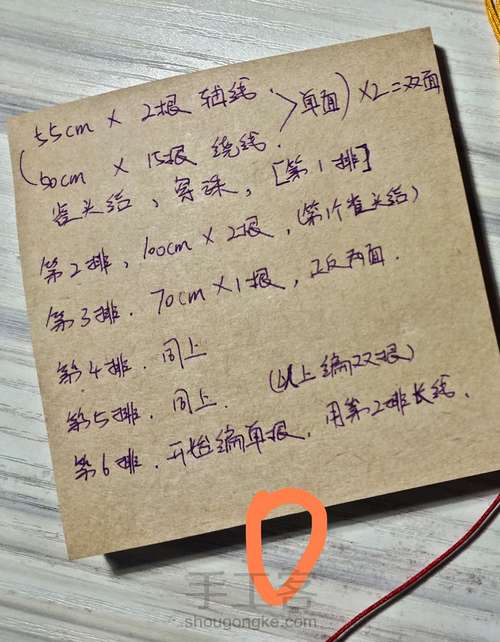 (55cm × 2根 轴线. >单面) ×2=双面
50cm × 15根 绕线.
雀头结, 穿珠, [第1排]
第2排, 100cm×2根, (第1个雀头结)
第3排. 70cm×1根, 正反两面.
第4排. 同上
第5排. 同上. (以上编双根)
第6排. 开始编单根. 用第2排长线.
手工客
shougongke.com